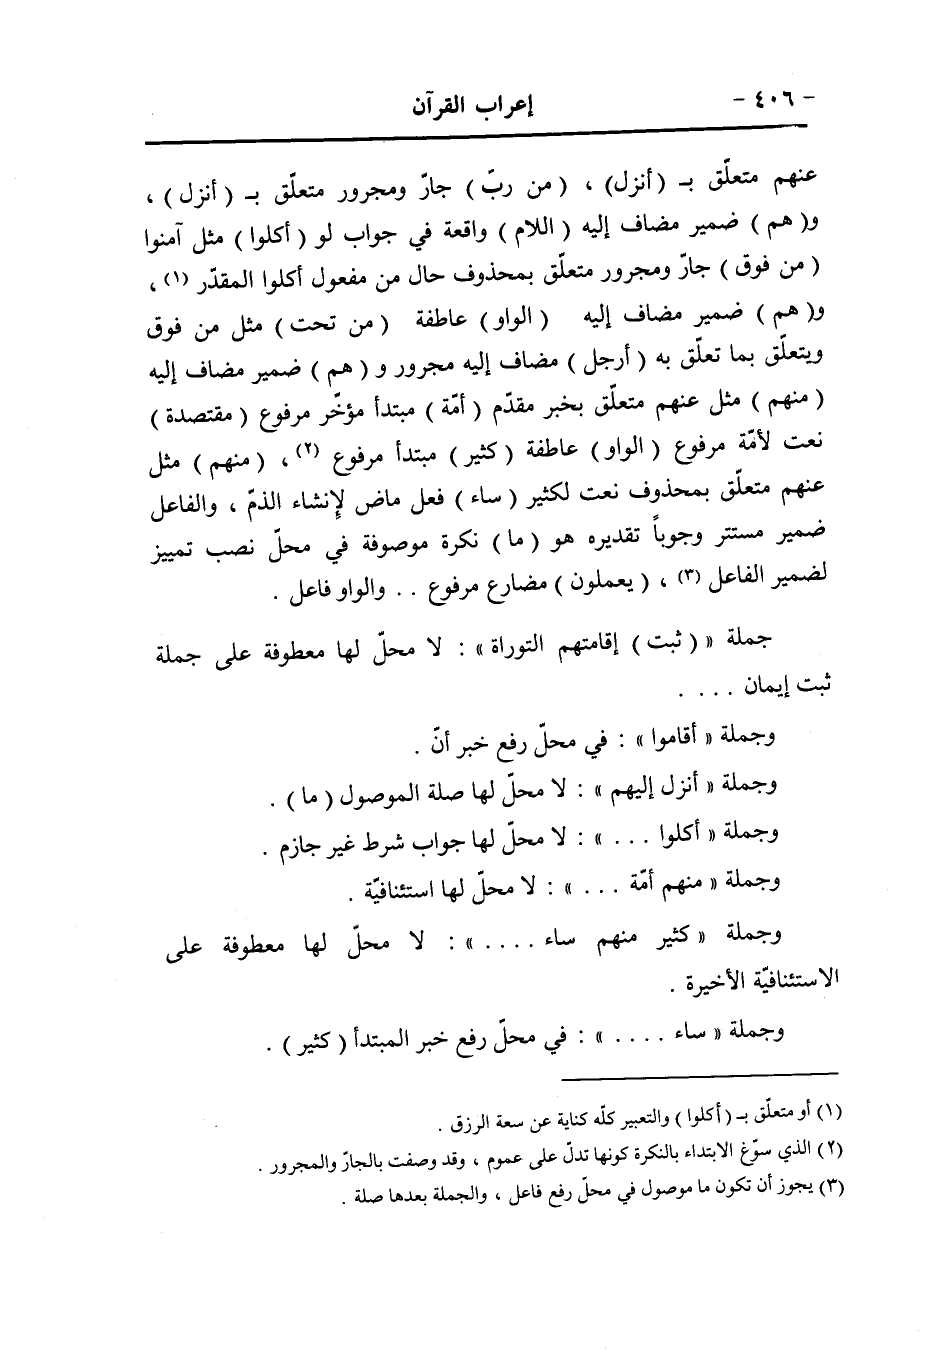 - ٤٠٦ - إعراب القرآن
عنهم متعلّق بـ (أنزل) ، (من ربّ) جارّ ومجرور متعلّق بـ (أنزل) ،
و(هم) ضمير مضاف إليه (اللام) واقعة في جواب لو (أكلوا) مثل آمنوا
(من فوق) جارّ ومجرور متعلّق بمحذوف حال من مفعول أكلوا المقدّر (١) ،
و(هم) ضمير مضاف إليه (الواو) عاطفة (من تحت) مثل من فوق
ويتعلّق بما تعلّق به (أرجل) مضاف إليه مجرور و (هم) ضمير مضاف إليه
(منهم) مثل عنهم متعلّق بخبر مقدّم (أمّة) مبتدأ مؤخّر مرفوع (مقتصدة)
نعت لأمّة مرفوع (الواو) عاطفة (كثير) مبتدأ مرفوع (٢) ، (منهم) مثل
عنهم متعلّق بمحذوف نعت لكثير (ساء) فعل ماض لإنشاء الذمّ ، والفاعل
ضمير مستتر وجوباً تقديره هو (ما) نكرة موصوفة في محلّ نصب تمييز
لضمير الفاعل (٣) ، (يعملون) مضارع مرفوع . . والواو فاعل .
جملة « (ثبت) إقامتهم التوراة » : لا محلّ لها معطوفة على جملة
ثبت إيمان . . . .
وجملة « أقاموا » : في محلّ رفع خبر أنّ .
وجملة « أنزل إليهم » : لا محلّ لها صلة الموصول (ما) .
وجملة « أكلوا . . . » : لا محلّ لها جواب شرط غير جازم .
وجملة « منهم أمّة . . . » : لا محلّ لها استئنافيّة .
وجملة « كثير منهم ساء . . . . » : لا محلّ لها معطوفة على
الاستئنافيّة الأخيرة .
وجملة « ساء . . . . » : في محلّ رفع خبر المبتدأ (كثير) .
(١) أو متعلّق بـ (أكلوا) والتعبير كلّه كناية عن سعة الرزق .
(٢) الذي سوّغ الابتداء بالنكرة كونها تدلّ على عموم ، وقد وصفت بالجارّ والمجرور .
(٣) يجوز أن تكون ما موصول في محلّ رفع فاعل ، والجملة بعدها صلة .